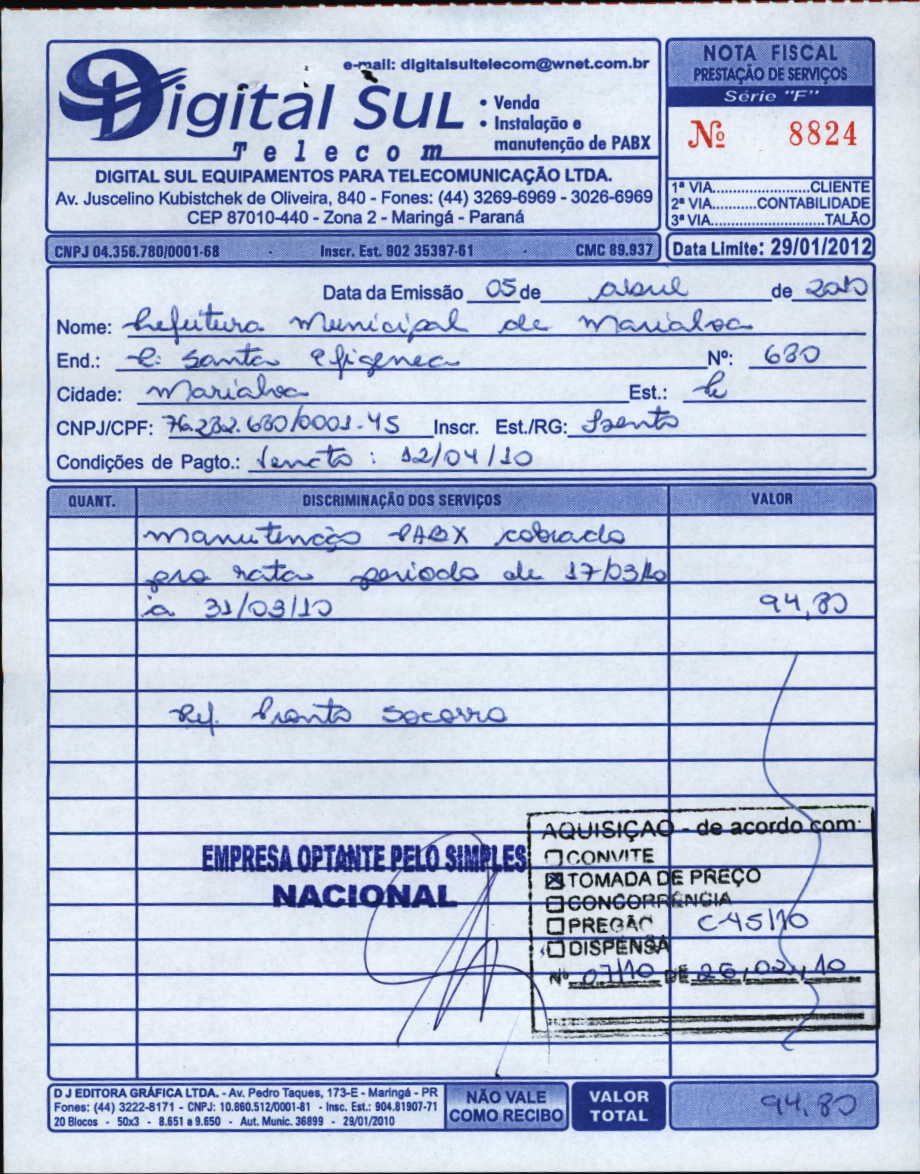 e-mail: digitalsultelecom@wnet.com.br
Digital SUL
Telecom
• Venda
• Instalação e
manutenção de PABX
DIGITAL SUL EQUIPAMENTOS PARA TELECOMUNICAÇÃO LTDA.
Av. Juscelino Kubistchek de Oliveira, 840 - Fones: (44) 3269-6969 - 3026-6969
CEP 87010-440 - Zona 2 - Maringá - Paraná
NOTA FISCAL
PRESTAÇÃO DE SERVIÇOS
Série "F"
Nº 8824
1ª VIA......................CLIENTE
2ª VIA..........CONTABILIDADE
3ª VIA.........................TALÃO
CNPJ 04.356.780/0001-68 - Inscr. Est. 902 35397-61 - CMC 89.937
Data Limite: 29/01/2012
Data da Emissão 05 de abril de 2010
Nome: Prefeitura Municipal de Marialva
End.: R: Santa Efigenea Nº: 680
Cidade: Marialva Est.: Pr
CNPJ/CPF: 76.282.680/0001-45 Inscr. Est./RG: Isento
Condições de Pagto.: Vencto: 12/04/10
QUANT. DISCRIMINAÇÃO DOS SERVIÇOS VALOR
Manutenção PABX cobrado
pro rata periodo de 17/03/10
a 31/03/10 94,80
Ref. Pronto Socorro
EMPRESA OPTANTE PELO SIMPLES
NACIONAL
AQUISIÇÃO - de acordo com:
CONVITE
TOMADA DE PREÇO
CONCORRÊNCIA
PREGÃO C-45/10
DISPENSA
Nº 07/10 DE 26/02/10
D J EDITORA GRÁFICA LTDA. - Av. Pedro Taques, 173-E - Maringá - PR
Fones: (44) 3222-8171 - CNPJ: 10.860.512/0001-81 - Insc. Est.: 904.81907-71
20 Blocos - 50x3 - 8.651 a 9.650 - Aut. Munic. 36899 - 29/01/2010
NÃO VALE
COMO RECIBO
VALOR
TOTAL
94,80